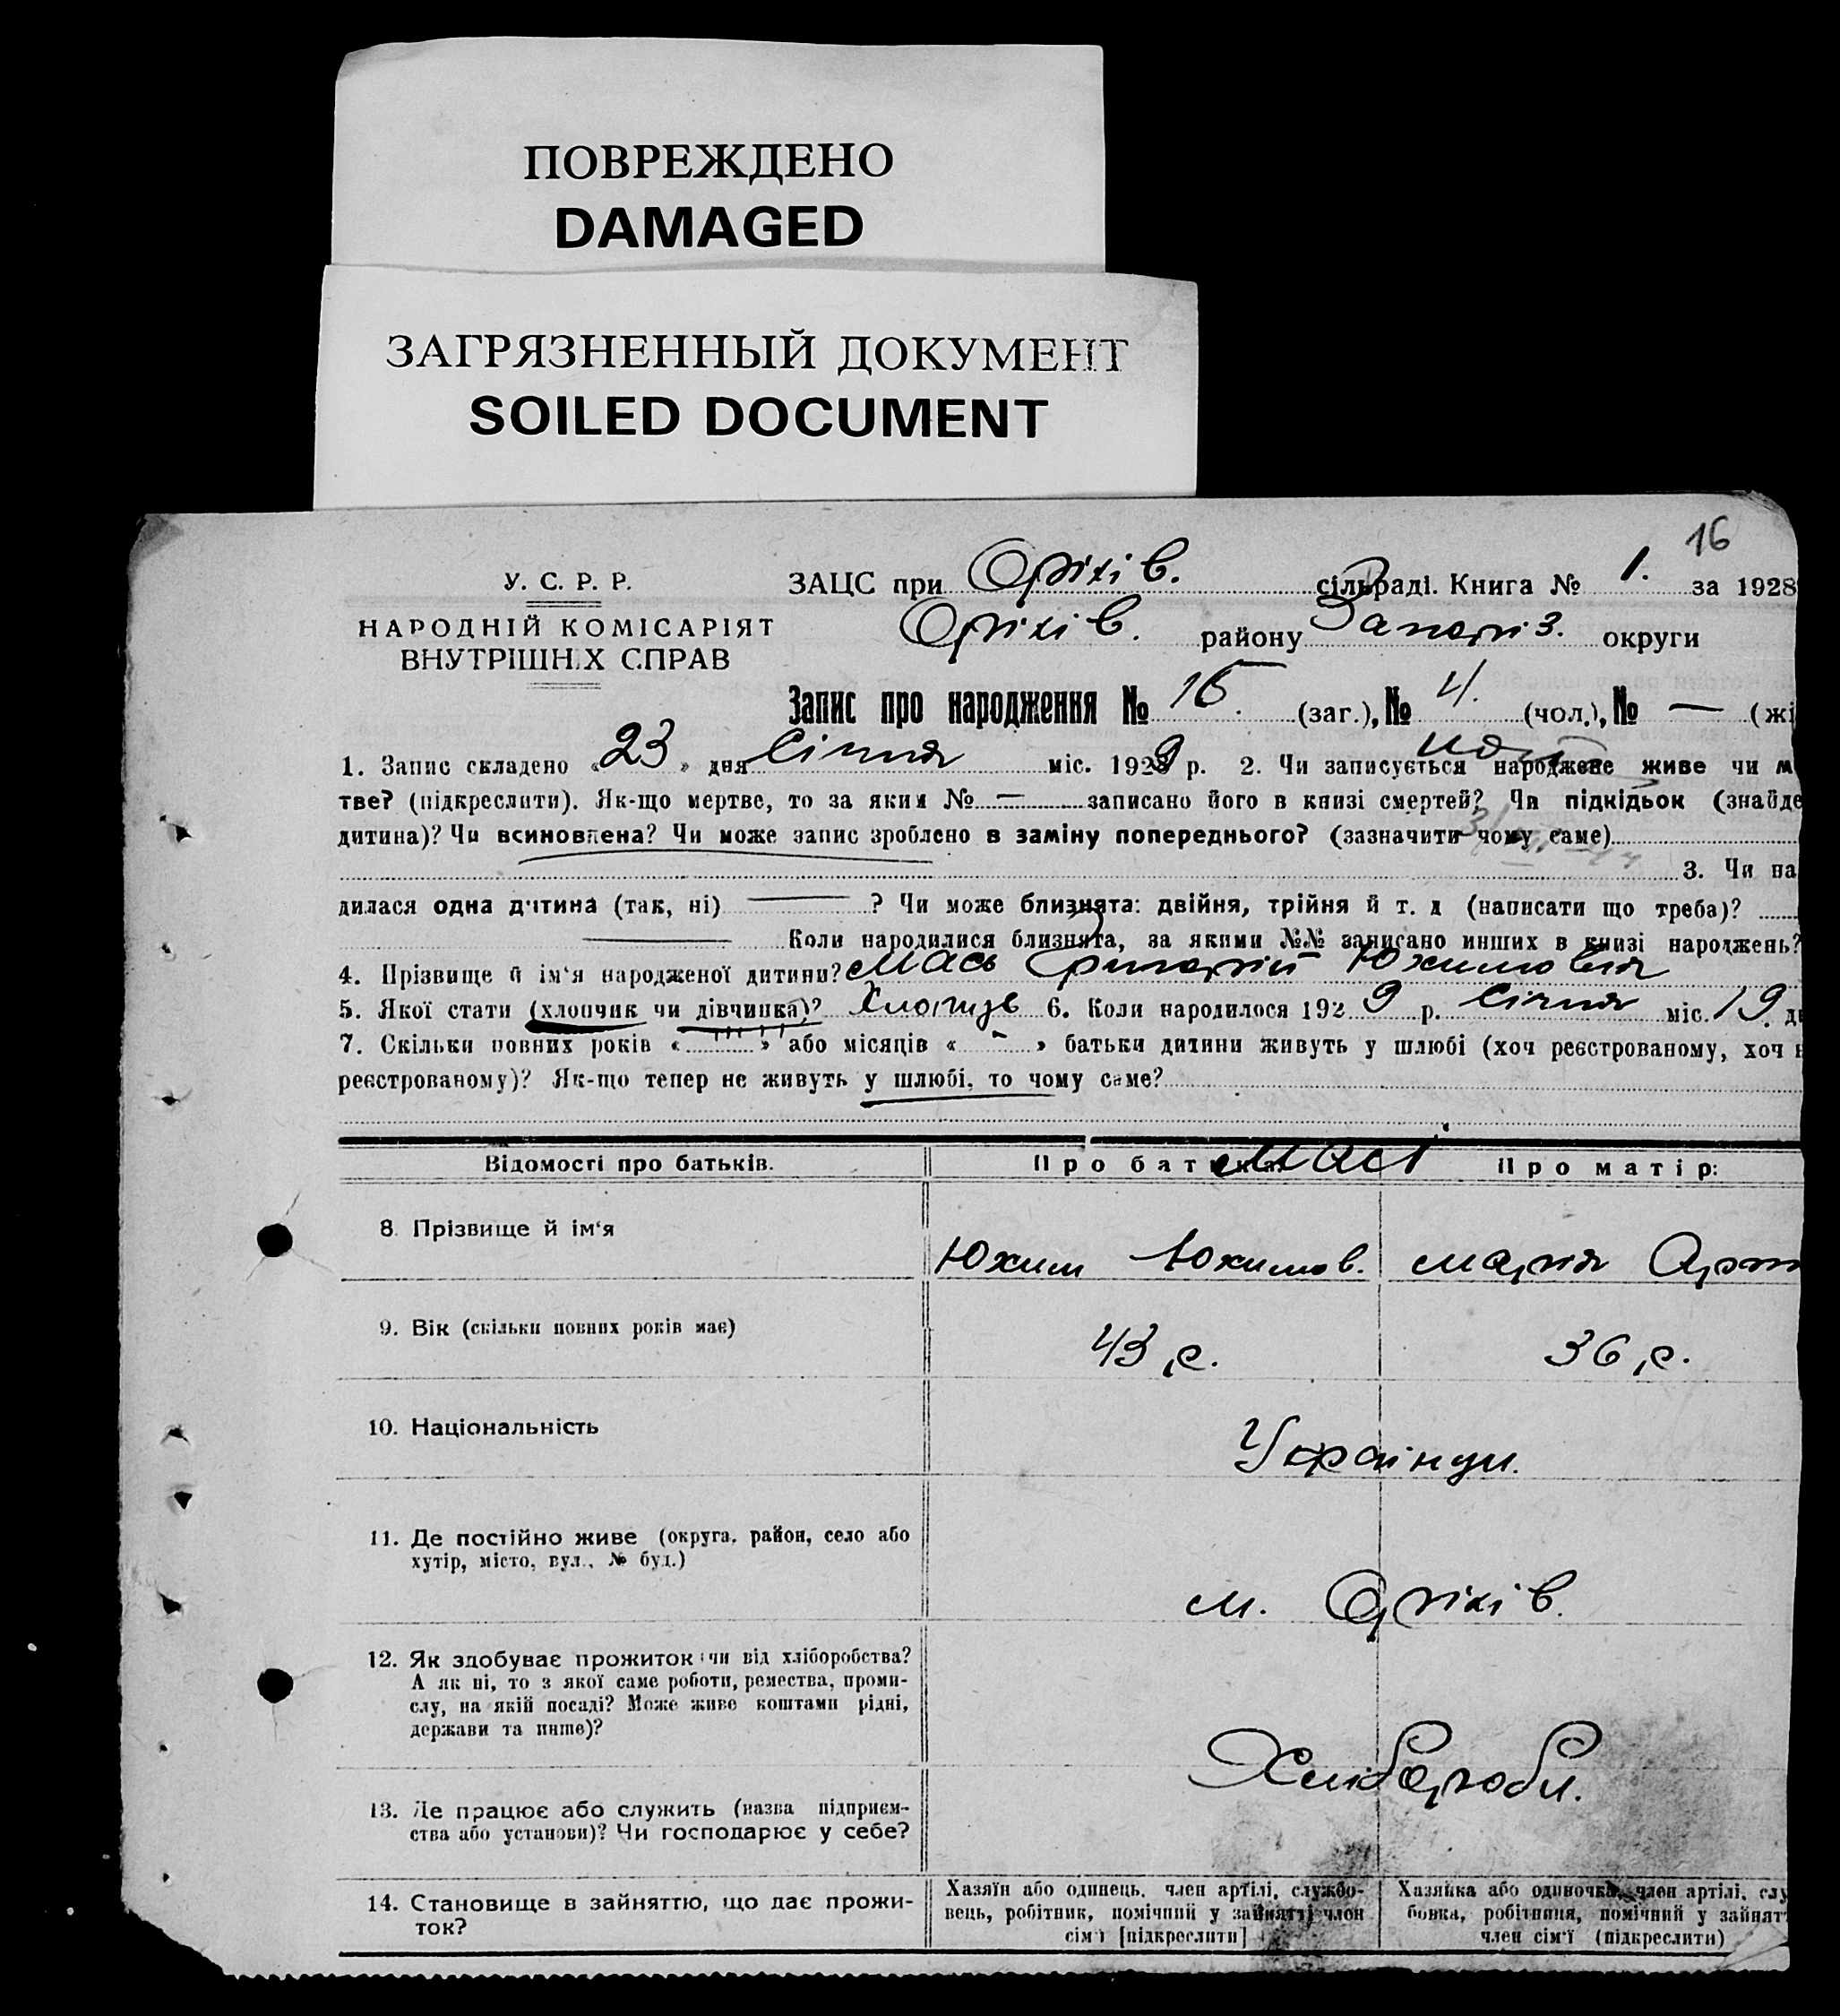 ПОВРЕЖДЕНО
DAMAGED
ЗАГРЯЗНЕННЫЙ ДОКУМЕНТ
SOILED DOCUMENT
16
У. С. Р. Р.
НАРОДНІЙ КОМІСАРІЯТ
ВНУТРІШНІХ СПРАВ
ЗАЦС при Оріхів. сільраді. Книга № 1. за 1928
Оріхів. району Запоріз. округи
Запис про народження № 16. (заг.), № 4. (чол.), № — (жі
1. Запис складено «23» дня Січня міс. 1929 р. 2. Чи записується народжене живе чи м
тве? (підкреслити). Як-що мертве, то за яким № — записано його в книзі смертей? Чи підкідьок (знайде
дитина)? Чи всиновлена? Чи може запис зроблено в заміну попереднього? (зазначити чому саме)
3. Чи на
дилася одна дитина (так, ні) — ? Чи може близнята: двійня, трійня й т. д (написати що треба)?
— Коли народилися близнята, за якими №№ записано инших в книзі народжень?
4. Прізвище й ім'я народженої дитини? Мась Григорій Юхимовія
5. Якої стати (хлопчик чи дівчинка)? Хлопець 6. Коли народилося 1929 р. Січня міс. 19. дн
7. Скільки повних років « » або місяців « - » батьки дитини живуть у шлюбі (хоч реєстрованому, хоч н
реєстрованому)? Як-що тепер не живуть у шлюбі, то чому саме?
Відомості про батьків. Про батька: Про матір:
Масі
8. Прізвище й ім'я Юхим Юхимов. Марія Арт
9. Вік (скільки повних років має) 43 р. 36 р.
10. Національність Українци.
11. Де постійно живе (округа, район, село або
хутір, місто, вул., № буд.)
м. Оріхів.
12. Як здобуває прожиток (чи від хліборобства?
А як ні, то з якої саме роботи, ремества, проми-
слу, на якій посаді? Може живе коштами рідні,
держави та инше)?
Хлібороби.
13. Де працює або служить (назва підприєм-
ства або установи)? Чи господарює у себе?
14. Становище в зайняттю, що дає прожи-
ток?
Хазяїн або одинець, член артілі, службо-
вець, робітник, помічний у зайнятті член
сім'ї [підкреслити]
Хазяйка або одиночка, член артілі, слу
бовка, робітниця, помічний у зайнят
член сім'ї (підкреслити)